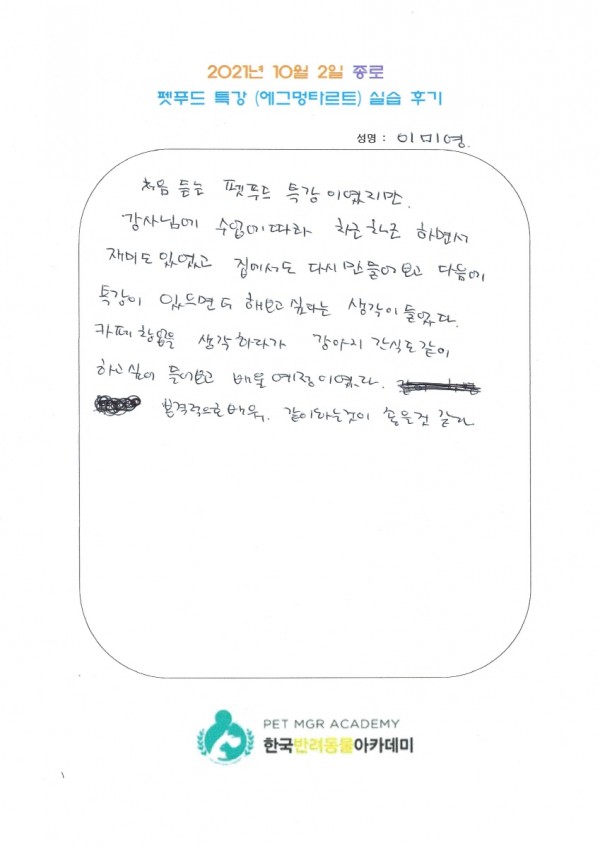 2021년 10월 2일 종로
펫푸드 특강 (에그멍타르트) 실습 후기
성명 : 이미영.
처음 듣는 펫푸드 특강이였지만.
강사님에 수업에따라 차근차근 하면서
재미도있였고 집에서도 다시만들어보고 다음에
특강이 있으면 더 해보고싶다는 생각이들었다.
카페창업을 생각하다가 강아지 간식도같이
하고싶어 들어보고 배울예정이였다.
본격적으로배워. 같이하는것이 좋을것 같다
PET MGR ACADEMY
한국반려동물아카데미